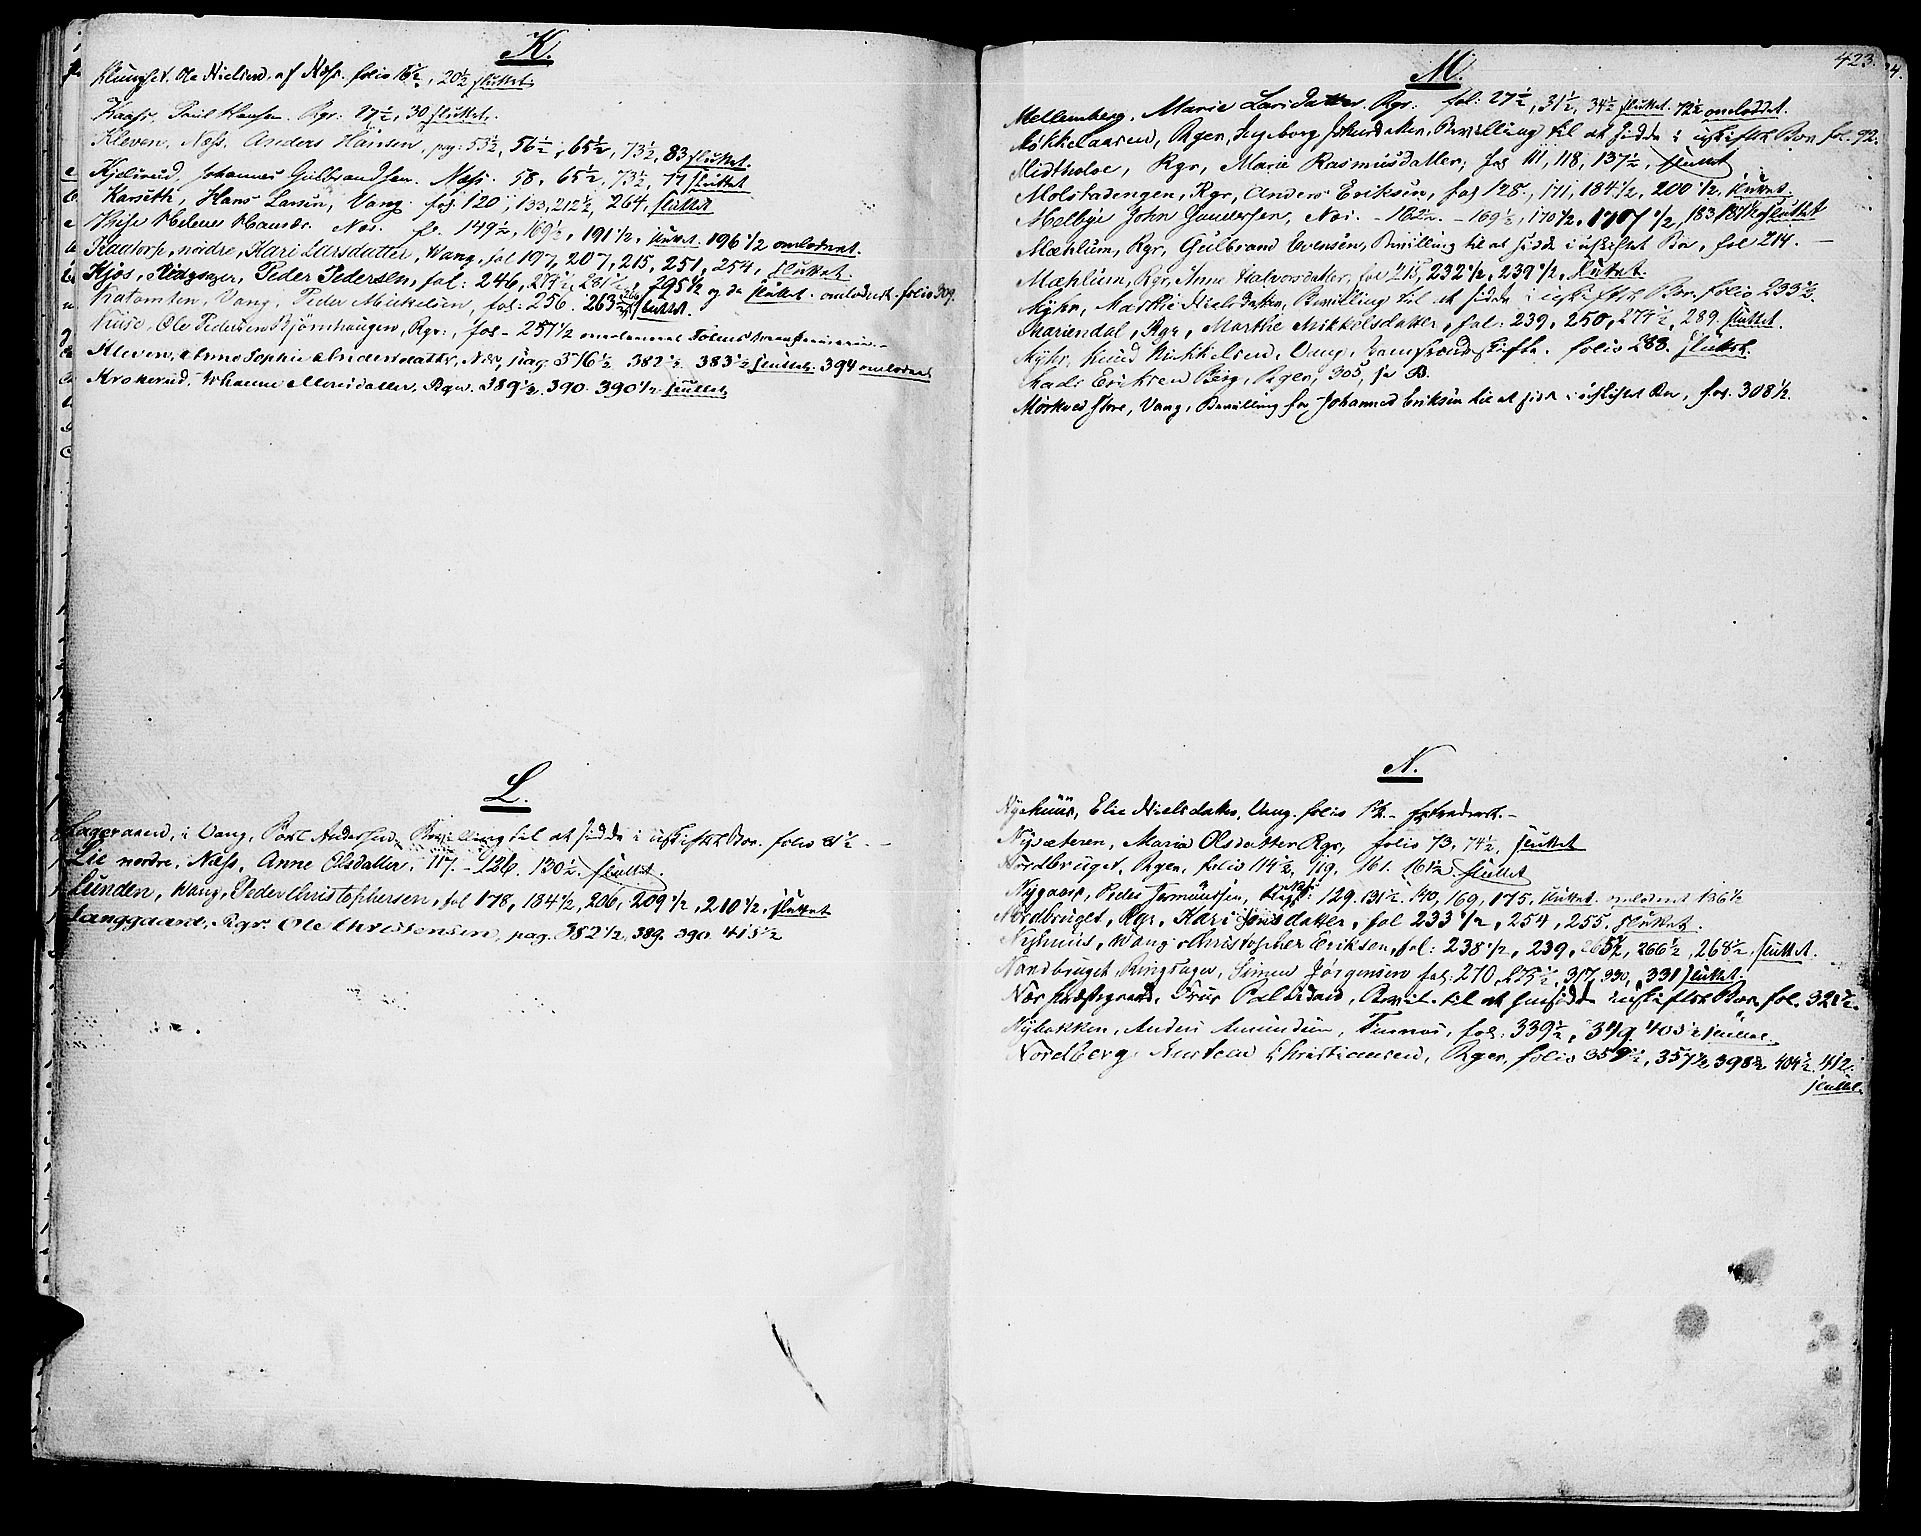 K.
Klungset, Ole Nielsen, af Næs. folio 16½, 20½ sluttet.
Kaass, Poul Hansen. Rgr: 27½, 30 sluttet.
Kleven, Næss, Anders Hansen, pag: 53½, 56½, 65½, 73½, 83 sluttet.
Kjelsrud, Johannes Gulbrandsen. Næss. 58, 65½, 73½, 77 sluttet
Karseth, Hans Larsen, Vang. fol. 120, 133, 212½, 264, sluttet
Helene Hansdr. Næs. fol. 149½, 169½, 191½, sluttet. 196½ omlodnet.
nordre, Kari Larsdatter, Wang, fol 197, 207, 215, 251, 254, sluttet.
Kjos, Ringsager, Peder Pedersen, fol: 246, 274½, 281½, 295½ og da sluttet. omlodnet folio 309.
Vang, Peder Mickelsen, fol: 256. 263½ sluttet.
Kuse, Ole Pedersen Bjørnhaugen, Rgr:, fol. 257½
Kleven, Anne Sophie Andersdatter, Næs, pag. 376½ 382½ 383½ sluttet. 394 omlodnet
Krokerud, Johanne Monsdatter, Rgr. 389½. 390. 390½ sluttet
L.
Lageraaen, i Vang, Anderssen Bevilling til at sidde i uskiftet Boe. folio 31½
Lie nordre, Næss, Anne Olsdatter. 117. 126, 130½ sluttet.
Lunden, Wang, Peder Christophersen, fol 178, 184½, 206, 209½, 210½, sluttet
Langgaard, Rgr. Ole Christensen, pag. 382½, 389. 390. 415½
423.
M.
Mellemberg, Marie Larsdatter. Rgr: fol: 27½, 31½, 34½ sluttet. 72½ omloddet.
Mikkelsaaen, Rgr, Ingeborg Bevilling til at sidde i uskiftet Boe fol. 92.
Midtholoe, Rgr, Marie Rasmusdatter, fol 111, 118, 137½, sluttet
Molstadengen, Rgr, Anders Eriksen, fol 128, 171, 184½, 200½, sluttet.
Melbye John Gundersen, Næs. 162½. 169½, 170½, 1707½, 183 sluttet
Mæhlum, Rgr, Gulbrand Evensen, Bevilling til at sidde i uskiftet Boe, fol 214.
Mæhlum, Rgr, Anne Halvorsdatter, fol 215, 232½, 239½, sluttet.
Myhr, Marthe Nielsdatter, Bevilling til at sidde i uskiftet Boe, folio 233½
Mariendal, Rgr, Marthe Mikkelsdatter, fol: 239, 250, 274½, 289. sluttet.
Myhr, Knud Mikkelsen, Vang, Samfrændeskifte. folio 288. sluttet.
Mads Eriksen Berg, Rgr, 305,
Mørkved store, Vang, Bevilling for Johannes Eriksen til at sidde i uskiftet Boe, fol. 308½.
N.
Nyehuus, Elie Nielsdatter, Vang. folio 1½. Extraderet.
Nysæteren, Maria Olsdatter Rgr, folio 73, 74½, sluttet
Nordbruget, Rgr, folio 114½, 119, 161. 161½ sluttet
Nygaard, Peder 129. 131½. 140, 169, 175. sluttet. omlodnet 136½
Nordbruget, Rgr, Kari Jensdatter, fol 233½, 254, 255. sluttet.
Nyhuus, Wang Christopher Eriksen, fol: 238½, 239, 265½, 266½, 268½, sluttet.
Nordbruget Ringsager, Simen Jørgensen fol: 270, 275½, 317, 330, 331 sluttet.
Næs Præstegaard, Fru til at hensidde i uskiftet Boe, fol. 321½.
Nybakken, Anders Amundsen, Furnæs, fol: 339½, 349. 405½ sluttet.
Nordberg, Christiansen, Rgr, folio 357½, 398½, 404½, 412.
sluttet.